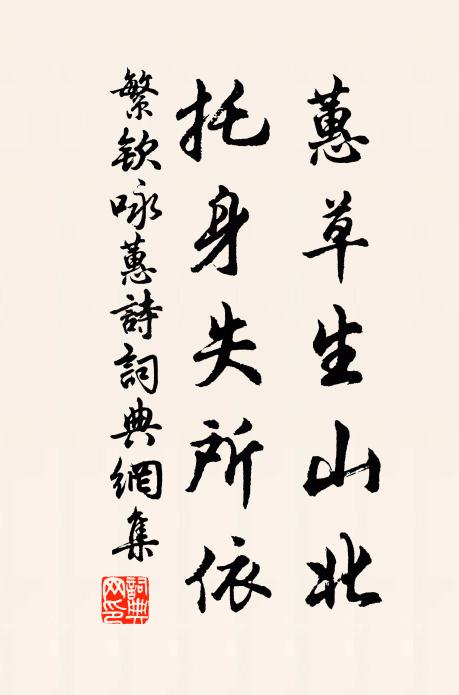 蕙草生山北
托身失所依
繁欽咏蕙詩詞典網集
詞典网印